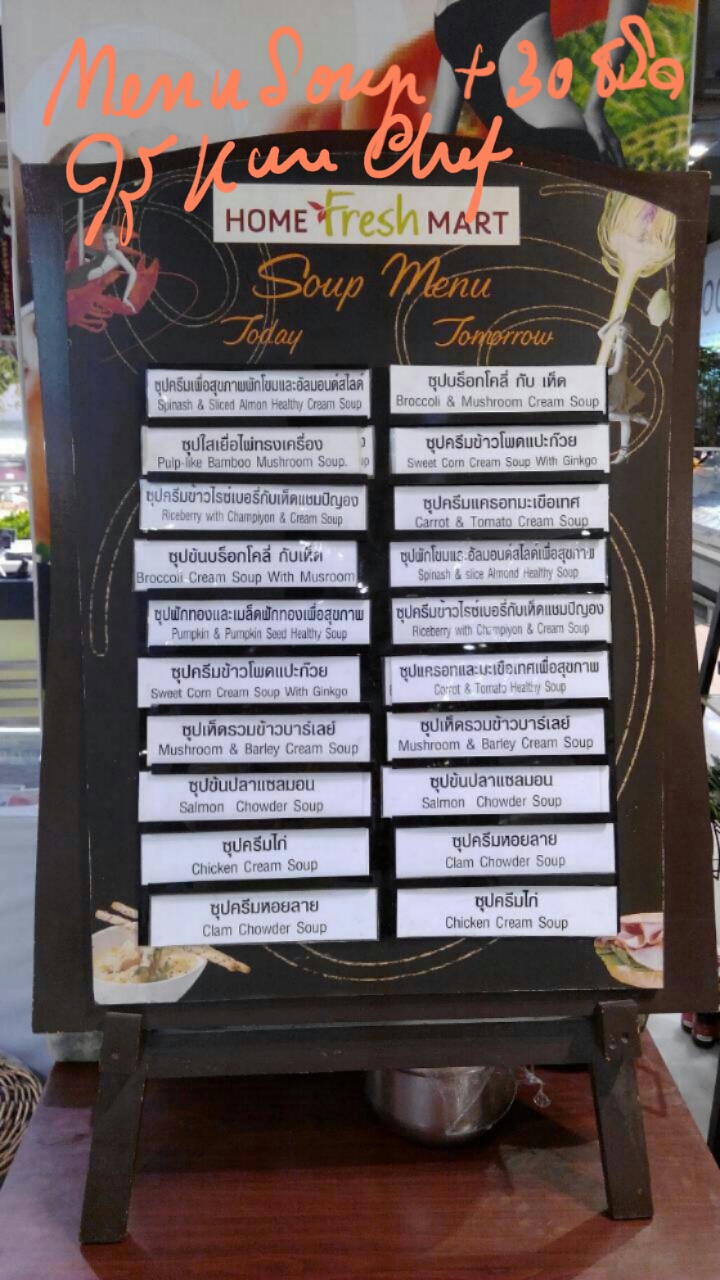 Menu Soup + 30 ชนิด
Chef
HOME Fresh MART
Soup Menu
Today
Tomorrow
ซุปครีมเพื่อสุขภาพผักโขมและอัลมอนด์สไลด์
Spinash & Sliced Almon Healthy Cream Soup
ซุปใสเยื่อไผ่ทรงเครื่อง
Pulp-like Bamboo Mushroom Soup.
ซุปครีมข้าวไรซ์เบอรี่กับเห็ดแชมปิญอง
Riceberry with Champiyon & Cream Soup
ซุปข้นบร็อกโคลี่ กับเห็ด
Broccoli Cream Soup With Musroom
ซุปฟักทองและเมล็ดฟักทองเพื่อสุขภาพ
Pumpkin & Pumpkin Seed Healthy Soup
ซุปครีมข้าวโพดแปะก๊วย
Sweet Corn Cream Soup With Ginkgo
ซุปเห็ดรวมข้าวบาร์เลย์
Mushroom & Barley Cream Soup
ซุปข้นปลาแซลมอน
Salmon Chowder Soup
ซุปครีมไก่
Chicken Cream Soup
ซุปครีมหอยลาย
Clam Chowder Soup
ซุปบร็อกโคลี่ กับ เห็ด
Broccoli & Mushroom Cream Soup
ซุปครีมข้าวโพดแปะก๊วย
Sweet Corn Cream Soup With Ginkgo
ซุปครีมแครอทมะเขือเทศ
Carrot & Tomato Cream Soup
ซุปผักโขมและอัลมอนด์สไลด์เพื่อสุขภาพ
Spinash & slice Almond Healthy Soup
ซุปครีมข้าวไรซ์เบอรี่กับเห็ดแชมปิญอง
Riceberry with Champiyon & Cream Soup
ซุปแครอทและมะเขือเทศเพื่อสุขภาพ
Carrot & Tomato Healthy Soup
ซุปเห็ดรวมข้าวบาร์เลย์
Mushroom & Barley Cream Soup
ซุปข้นปลาแซลมอน
Salmon Chowder Soup
ซุปครีมหอยลาย
Clam Chowder Soup
ซุปครีมไก่
Chicken Cream Soup